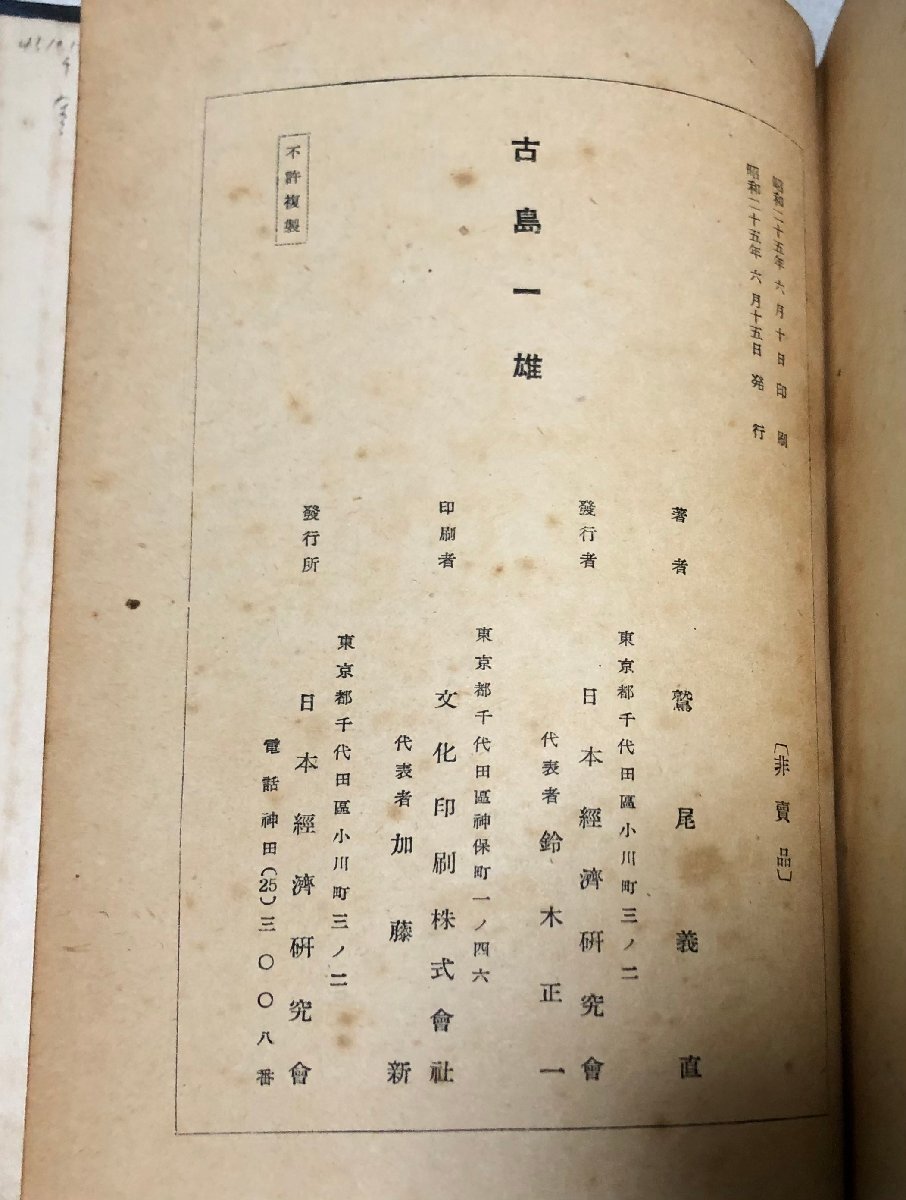 昭和二十五年六月十日印刷
昭和二十五年六月十五日発行
〔非賣品〕
古島一雄
著者 鷲尾義直
東京都千代田區小川町三ノ二
發行者 日本經濟硏究會
代表者 鈴木正一
東京都千代田區神保町一ノ四六
印刷者 文化印刷株式會社
代表者 加藤新
東京都千代田區小川町三ノ二
發行所 日本經濟硏究會
電話神田(25)三〇〇八番
不許複製